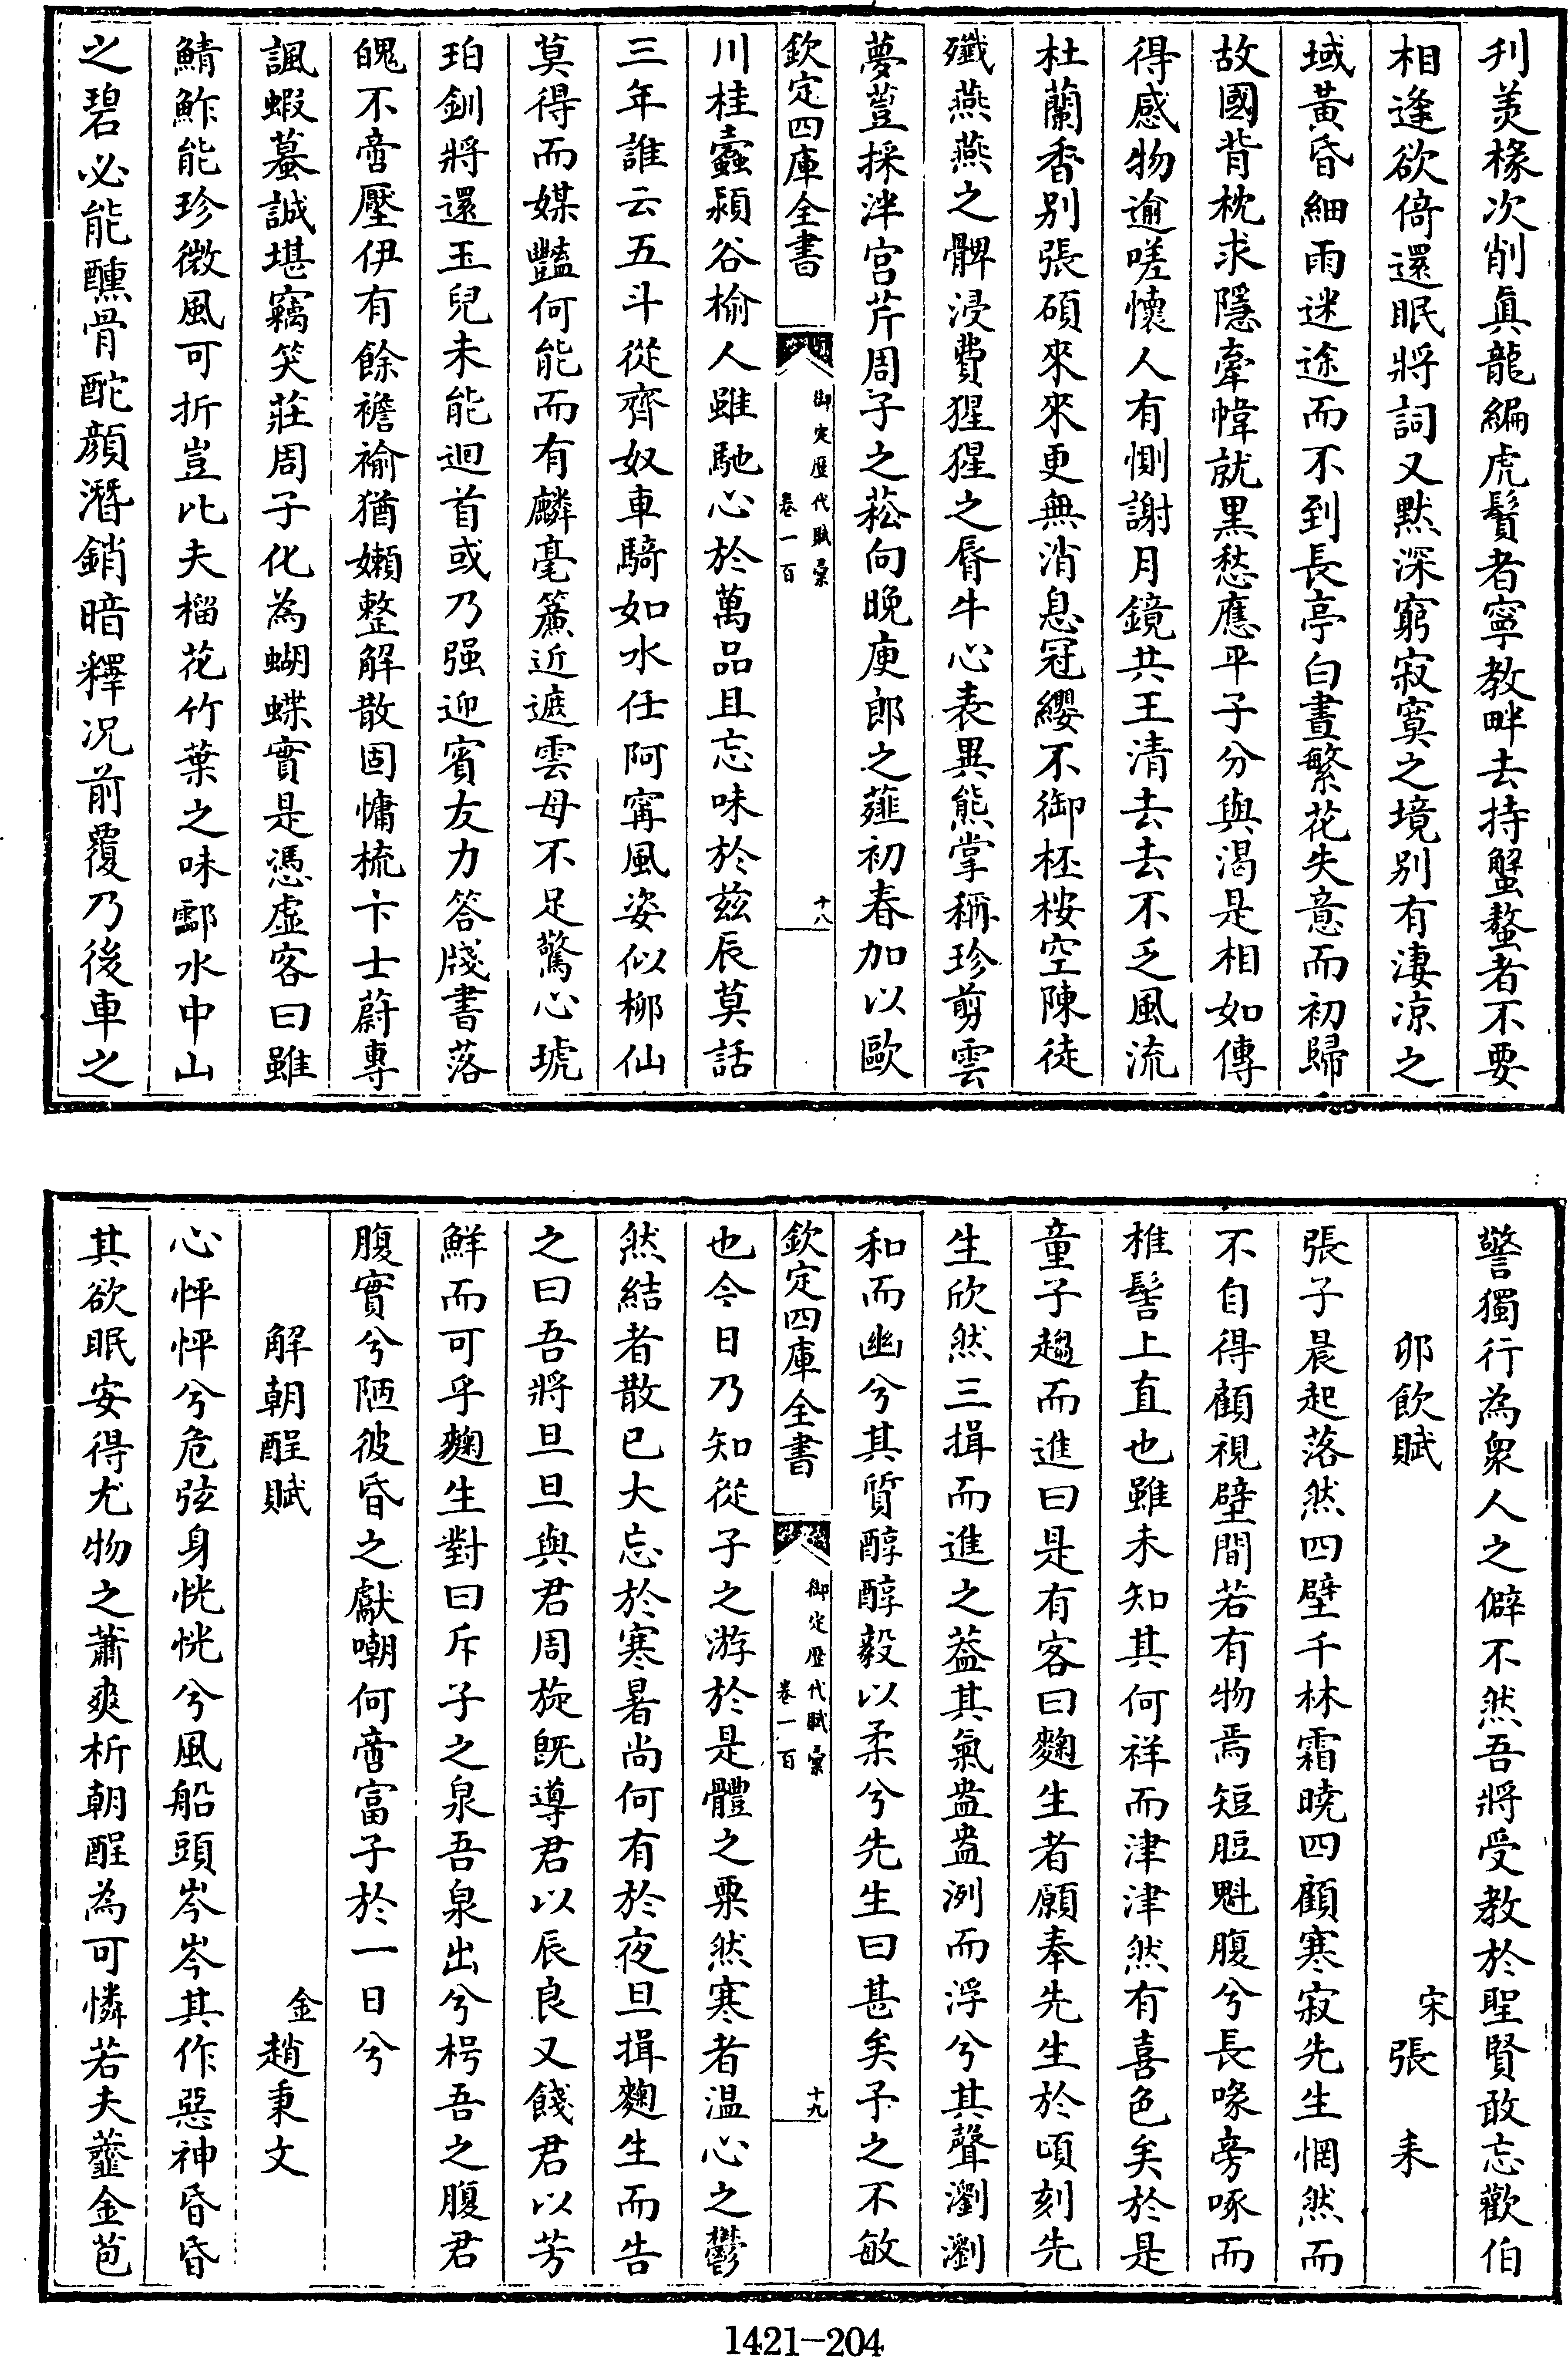 刋羙椽次削眞龍編虎鬢者寧教畔去持蟹螯者不要
相逢欲倚還眠將詞又黙深窮寂寞之境别有淒凉之
域黃昏細雨迷途而不到長亭白晝繁花失意而初歸
故國背枕求隱牽幃就黒愁應平子分與渴是相如傳
得感物逾嗟懷人有惻謝月鏡共王清去去不乏風流
杜蘭香别張碩來來更無消息冠纓不御柸桉空陳徒
殲燕燕之髀浸費猩猩之脣牛心表異熊掌稱珍剪雲
夢荳採泮宫芹周子之菘向晩庾郎之薤初春加以歐
欽定四庫全書
御定歷代賦彚
卷一百
十八
川桂蠧潁谷榆人雖馳心於萬品且忘味於兹辰莫話
三年誰云五斗從齊奴車騎如水任阿甯風姿似栁仙
莫得而媒豔何能而有麟毫簾近遮雲母不足驚心琥
珀釧將還玉兒未能迴首或乃强迎賓友力答牋書落
魄不啻壓伊有餘襜褕猶嬾整解散固慵梳卞士蔚專
諷蝦蟇誠堪竊笑莊周子化為蝴蝶實是憑虛客曰雖
鯖鮓能珍微風可折豈比夫榴花竹葉之味酃水中山
之碧必能醺骨酡顔潛銷暗釋况前覆乃後車之
警獨行為衆人之僻不然吾將受教於聖賢敢忘歡伯
卯飲賦
宋張耒
張子晨起落然四壁千林霜曉四顧寒寂先生惘然而
不自得顧視壁間若有物焉短脰魁腹兮長喙旁啄而
椎髻上直也雖未知其何祥而津津然有喜色矣於是
童子趨而進曰是有客曰麴生者願奉先生於頃刻先
生欣然三揖而進之葢其氣盎盎洌而浮兮其聲瀏瀏
和而幽兮其質醇醇毅以柔兮先生曰甚矣予之不敏
欽定四庫全書
御定歷代賦彚
卷一百
十九
也今日乃知從子之游於是體之粟然寒者温心之鬱
然結者散已大忘於寒暑尚何有於夜旦揖麴生而告
之曰吾將旦旦與君周旋既導君以辰良又餞君以芳
鮮而可乎麴生對曰斥子之泉吾泉出兮枵吾之腹君
腹實兮陋彼昏之獻嘲何啻富子於一日兮
解朝酲賦
金趙秉文
心怦怦兮危弦身恍恍兮風船頭岑岑其作惡神昏昏
其欲眠安得尤物之蕭爽析朝酲為可憐若夫虀金苞
1421-204